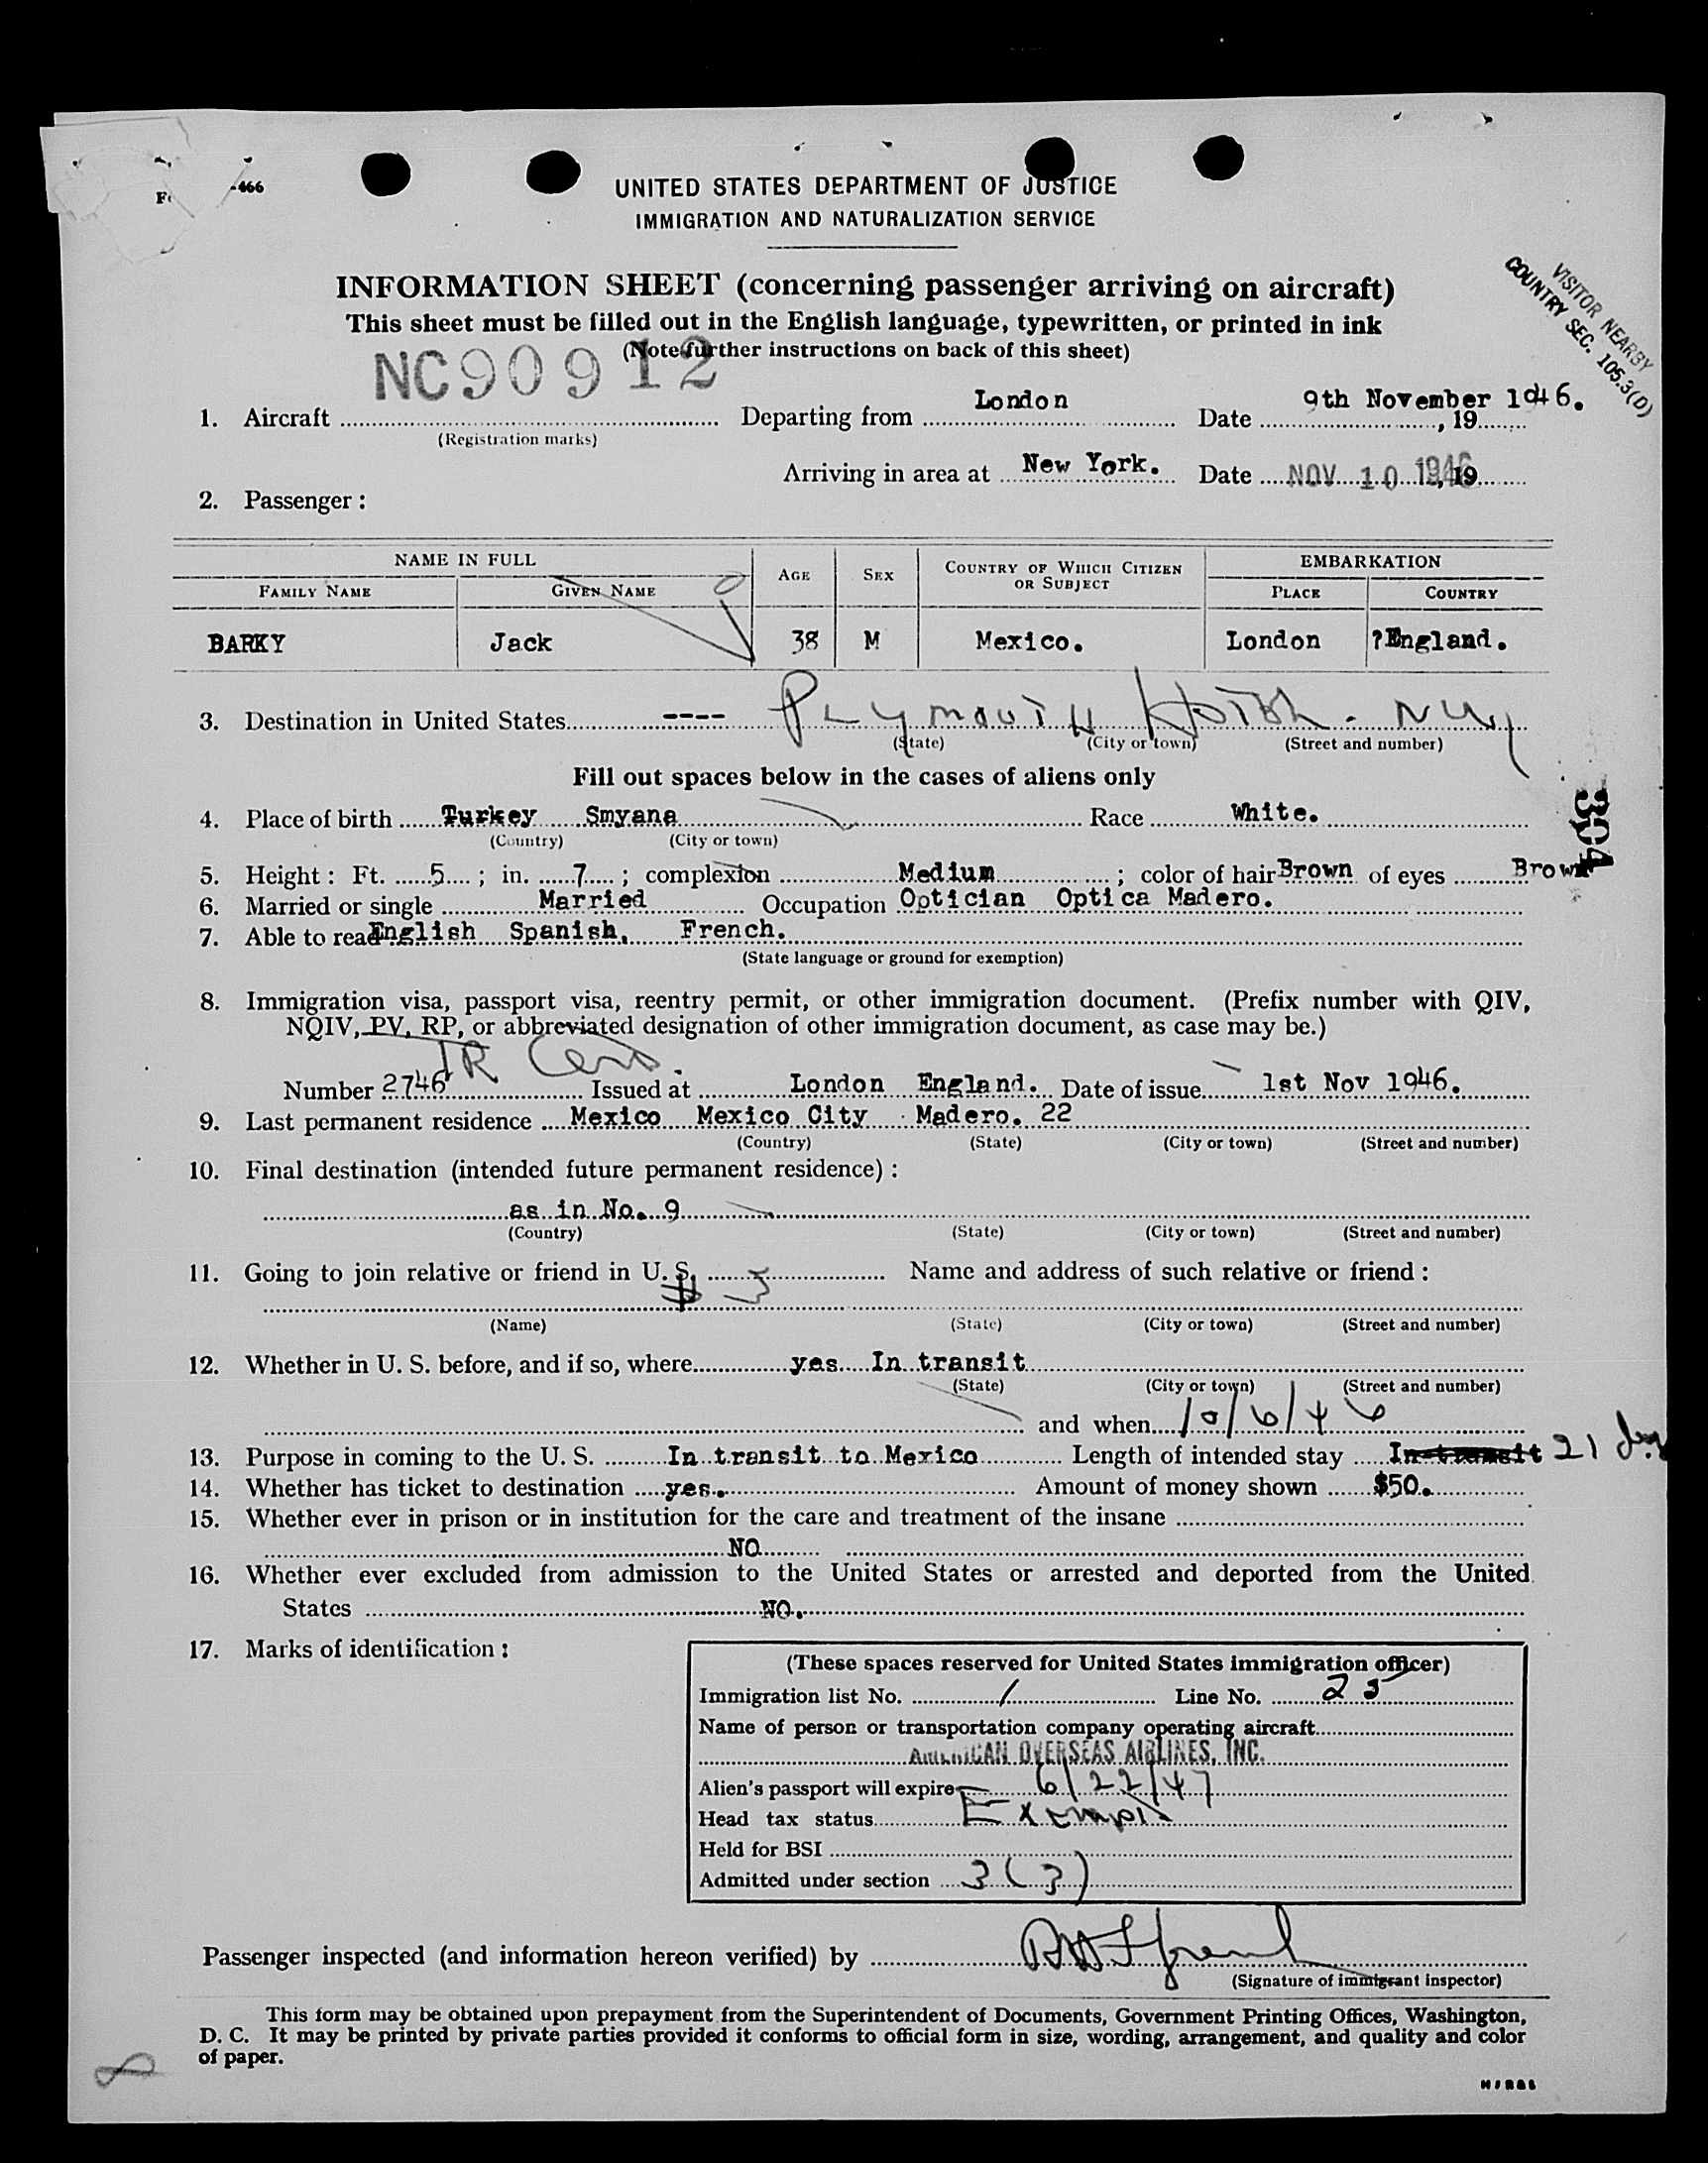 -466
UNITED STATES DEPARTMENT OF JUSTICE
IMMIGRATION AND NATURALIZATION SERVICE
INFORMATION SHEET (concerning passenger arriving on aircraft)
This sheet must be filled out in the English language, typewritten, or printed in ink
(Note further instructions on back of this sheet)
VISITOR NEARBY
COUNTRY SEC. 105.3(D)
NC90912
1. Aircraft Departing from London Date 9th November 1946. , 19
(Registration marks)
Arriving in area at New York. Date NOV 10 1946 , 19
2. Passenger :
NAME IN FULL AGE SEX COUNTRY OF WHICH CITIZEN OR SUBJECT EMBARKATION
FAMILY NAME GIVEN NAME PLACE COUNTRY
BARKY Jack 38 M Mexico. London ?England.
3. Destination in United States ---- PLYMOUTH Hotel - NY
(State) (City or town) (Street and number)
Fill out spaces below in the cases of aliens only
304
4. Place of birth Turkey Smyana Race White.
(Country) (City or town)
5. Height : Ft. 5 ; in. 7 ; complexion Medium ; color of hair Brown of eyes Brown
6. Married or single Married Occupation Optician Optica Madero.
7. Able to read English Spanish, French.
(State language or ground for exemption)
8. Immigration visa, passport visa, reentry permit, or other immigration document. (Prefix number with QIV,
NQIV, PV, RP, or abbreviated designation of other immigration document, as case may be.)
TR Cert.
Number 2746 Issued at London England. Date of issue 1st Nov 1946.
9. Last permanent residence Mexico Mexico City Madero. 22
(Country) (State) (City or town) (Street and number)
10. Final destination (intended future permanent residence) :
as in No. 9
(Country) (State) (City or town) (Street and number)
11. Going to join relative or friend in U. S. Name and address of such relative or friend :
# 3
(Name) (State) (City or town) (Street and number)
12. Whether in U. S. before, and if so, where yes In transit
(State) (City or town) (Street and number)
and when 10/6/46
13. Purpose in coming to the U. S. In transit to Mexico Length of intended stay In transit 21 days
14. Whether has ticket to destination yes. Amount of money shown $50.
15. Whether ever in prison or in institution for the care and treatment of the insane
NO
16. Whether ever excluded from admission to the United States or arrested and deported from the United
States NO.
17. Marks of identification :
(These spaces reserved for United States immigration officer)
Immigration list No. 1 Line No. 25
Name of person or transportation company operating aircraft
AMERICAN OVERSEAS AIRLINES, INC.
Alien's passport will expire 6/22/47
Head tax status Exempt
Held for BSI
Admitted under section 3(3)
Passenger inspected (and information hereon verified) by
(Signature of immigrant inspector)
This form may be obtained upon prepayment from the Superintendent of Documents, Government Printing Offices, Washington,
D. C. It may be printed by private parties provided it conforms to official form in size, wording, arrangement, and quality and color
of paper.